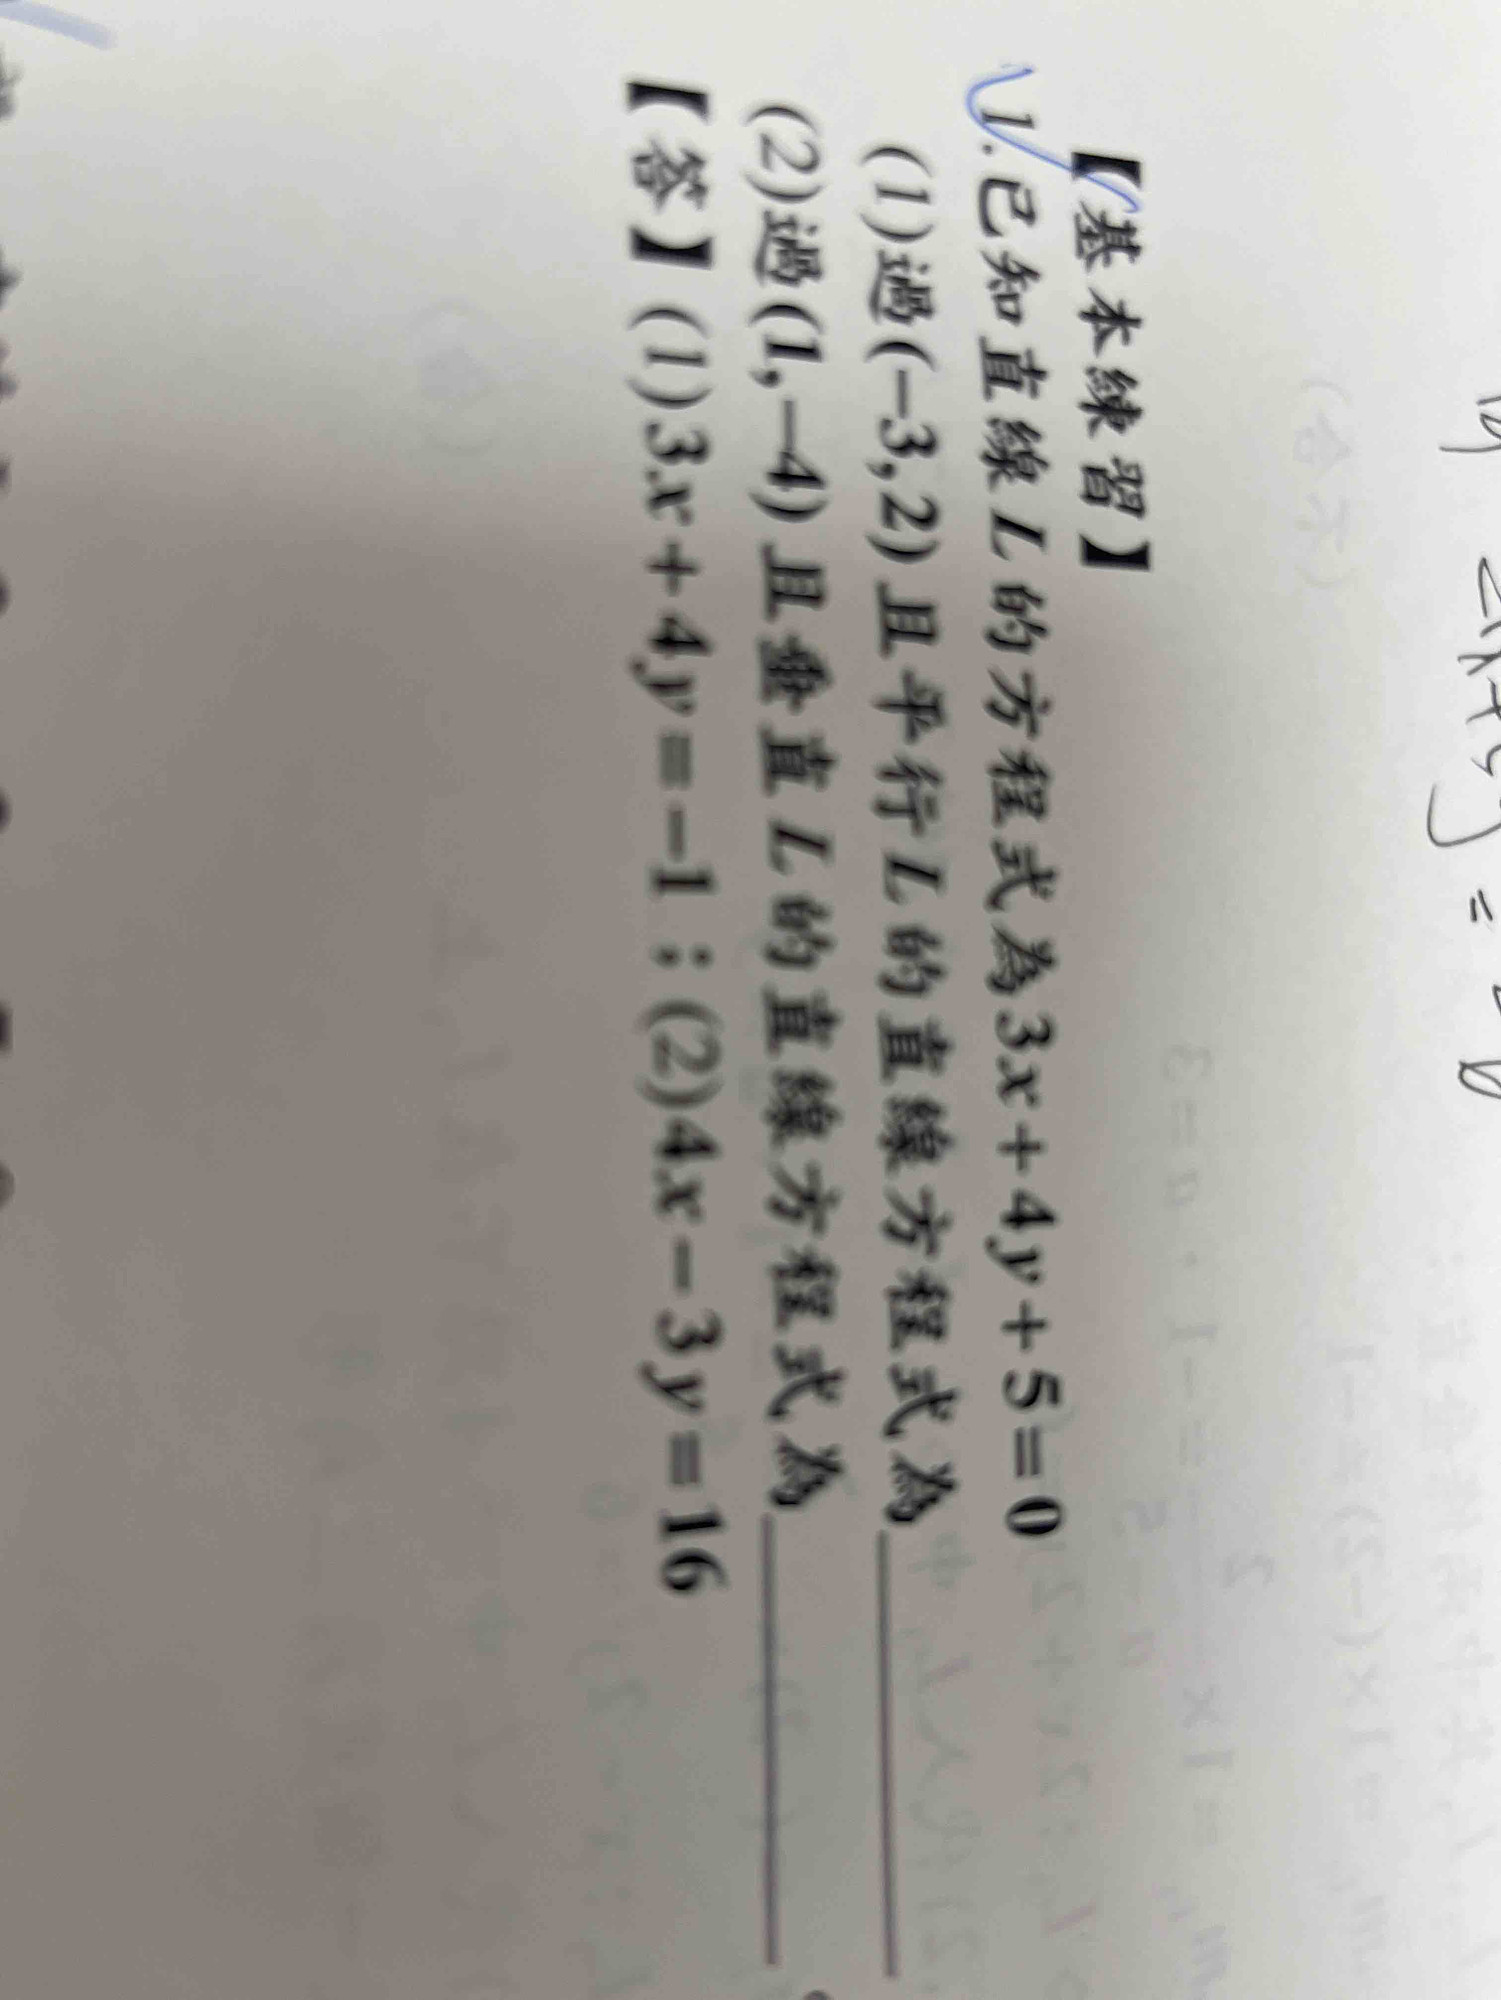 【基本練習】
1.已知直線L的方程式為3x+4y+5=0
(1)過(-3,2)且平行L的直線方程式為
(2)過(1,-4)且垂直L的直線方程式為
【答】(1)3x+4y=-1;(2)4x-3y=16